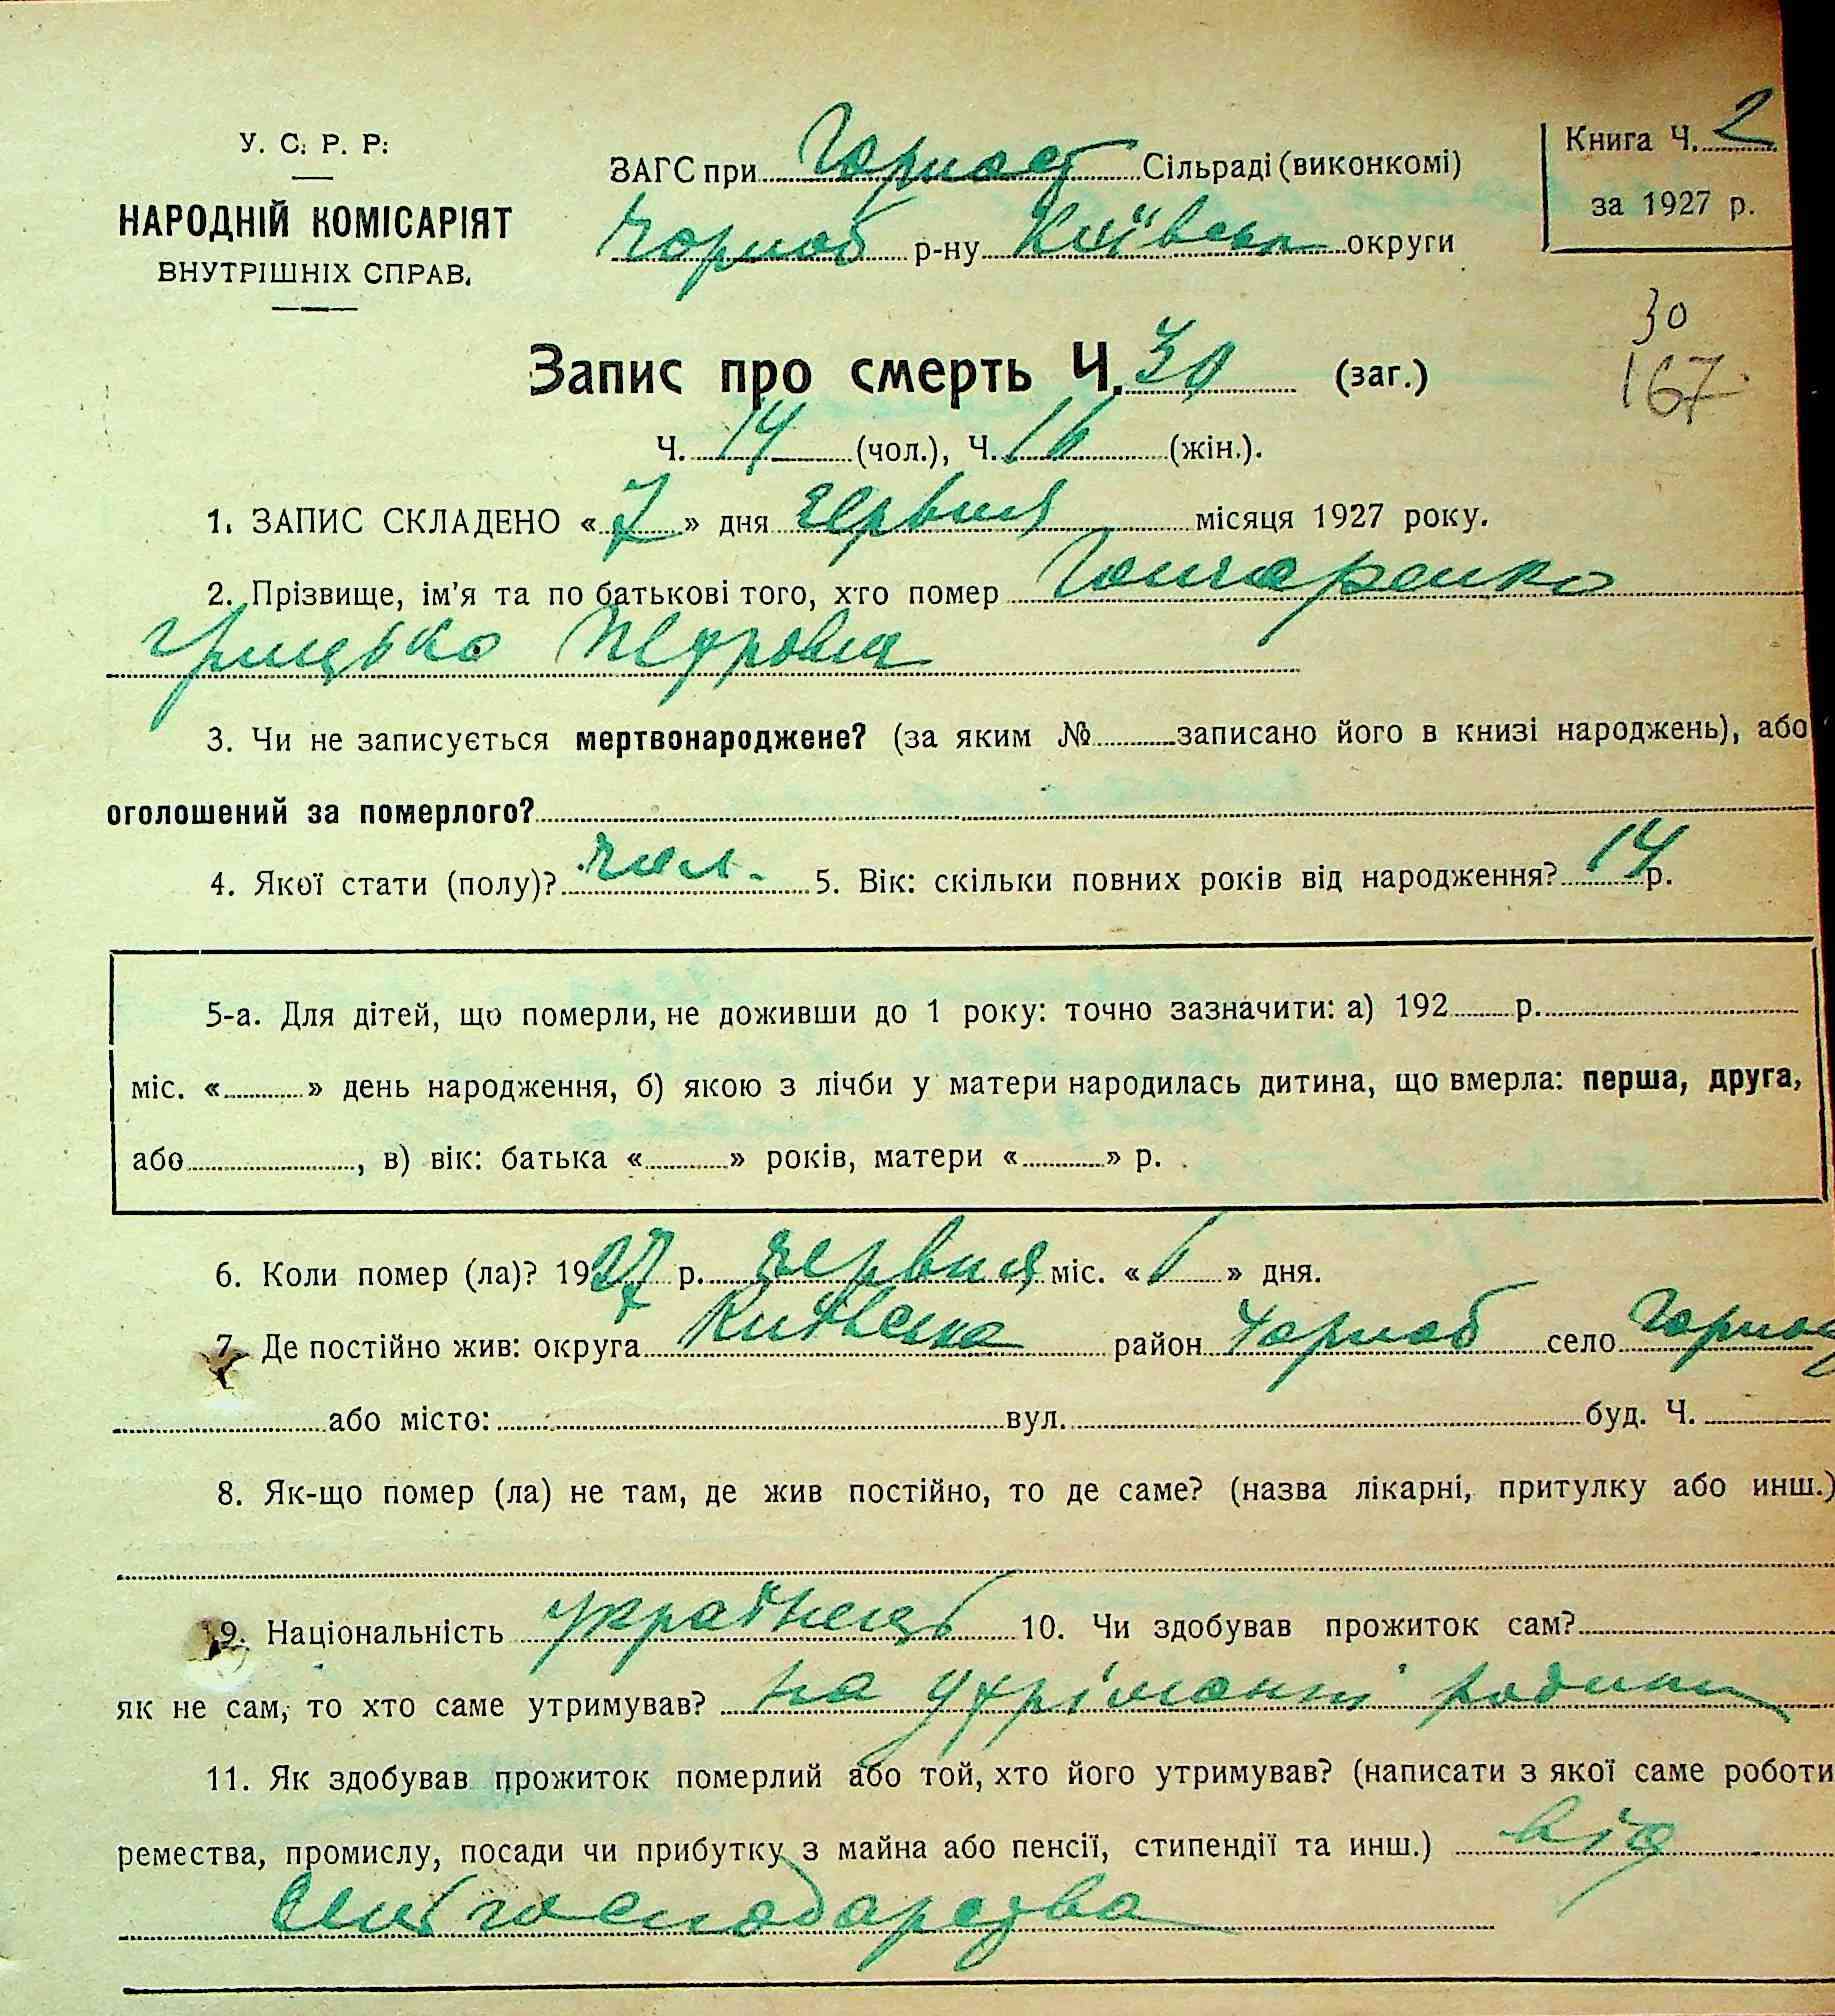 У. С. Р. Р.
НАРОДНІЙ КОМІСАРІЯТ
ВНУТРІШНІХ СПРАВ.
ЗАГС при Горност Сільраді (виконкомі)
Чорноб р-ну Київська округи
Книга Ч. 2
за 1927 р.
30
167
Запис про смерть Ч. 30 (заг.)
Ч. 14 (чол.), Ч. 16 (жін.).
1. ЗАПИС СКЛАДЕНО « 7 » дня червня місяця 1927 року.
2. Прізвище, ім'я та по батькові того, хто помер Гончаренко
Грицько
3. Чи не записується мертвонароджене? (за яким № записано його в книзі народжень), або
оголошений за померлого?
4. Якої стати (полу)? чол. 5. Вік: скільки повних років від народження? 14 р.
5-а. Для дітей, що померли, не доживши до 1 року: точно зазначити: а) 192 р.
міс. « » день народження, б) якою з лічби у матери народилась дитина, що вмерла: перша, друга,
або , в) вік: батька « » років, матери « » р.
6. Коли помер (ла)? 1927 р. червня міс. « 6 » дня.
7. Де постійно жив: округа Київська район Чорноб село Горнос
або місто: вул. буд. Ч.
8. Як-що помер (ла) не там, де жив постійно, то де саме? (назва лікарні, притулку або инш.)
9. Національність українець 10. Чи здобував прожиток сам?
як не сам, то хто саме утримував? на утріманні родини
11. Як здобував прожиток померлий або той, хто його утримував? (написати з якої саме роботи
ремества, промислу, посади чи прибутку з майна або пенсії, стипендії та инш.) від
сільгосподарства